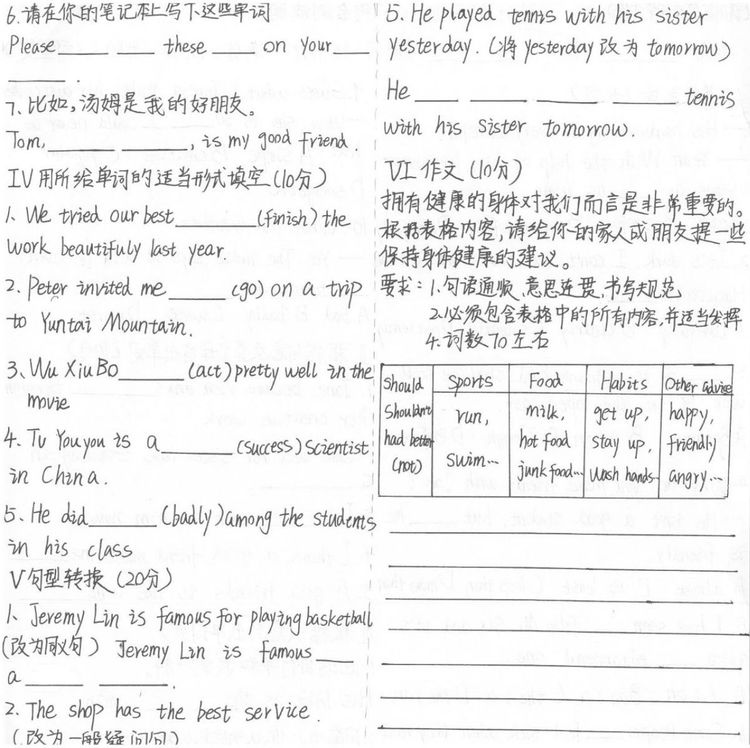 6.请在你的笔记本上写下这些单词
Please ____ ____ these ____ on your ____
____.
7.比如,汤姆是我的好朋友。
Tom, ____ ____, is my good friend.
IV 用所给单词的适当形式填空(10分)
1. We tried our best ____ (finish) the
work beautifuly last year
2. Peter invited me ____ (go) on a trip
to Yuntai Mountain.
3. Wu XiuBo ____ (act) pretty well in the
movie
4. Tu Youyou is a ____ (success) Scientist
in China.
5. He did ____ (badly) among the students
in his class
V 句型转换 (20分)
1. Jeremy Lin is famous for playing basketball
(改为同义句) Jeremy Lin is famous ____
a ____ ____.
2. The shop has the best service.
(改为一般疑问句)
5. He played tennis with his sister
yesterday. (将 yesterday 改为 tomorrow)
He ____ ____ ____ ____ tennis
with his sister tomorrow.
VI 作文 (10分)
拥有健康的身体对我们而言是非常重要的。
根据表格内容,请给你的家人或朋友提一些
保持身体健康的建议。
要求: 1.句语通顺,意思连贯,书写规范
2.必须包含表格中的所有内容,并适当发挥
4.词数70左右
Should
Shouldn't
had better
(not)
Sports
run,
swim...
Food
milk,
hot food
junk food...
Habits
get up,
stay up,
wash hands...
Other advise
happy,
friendly
angry...